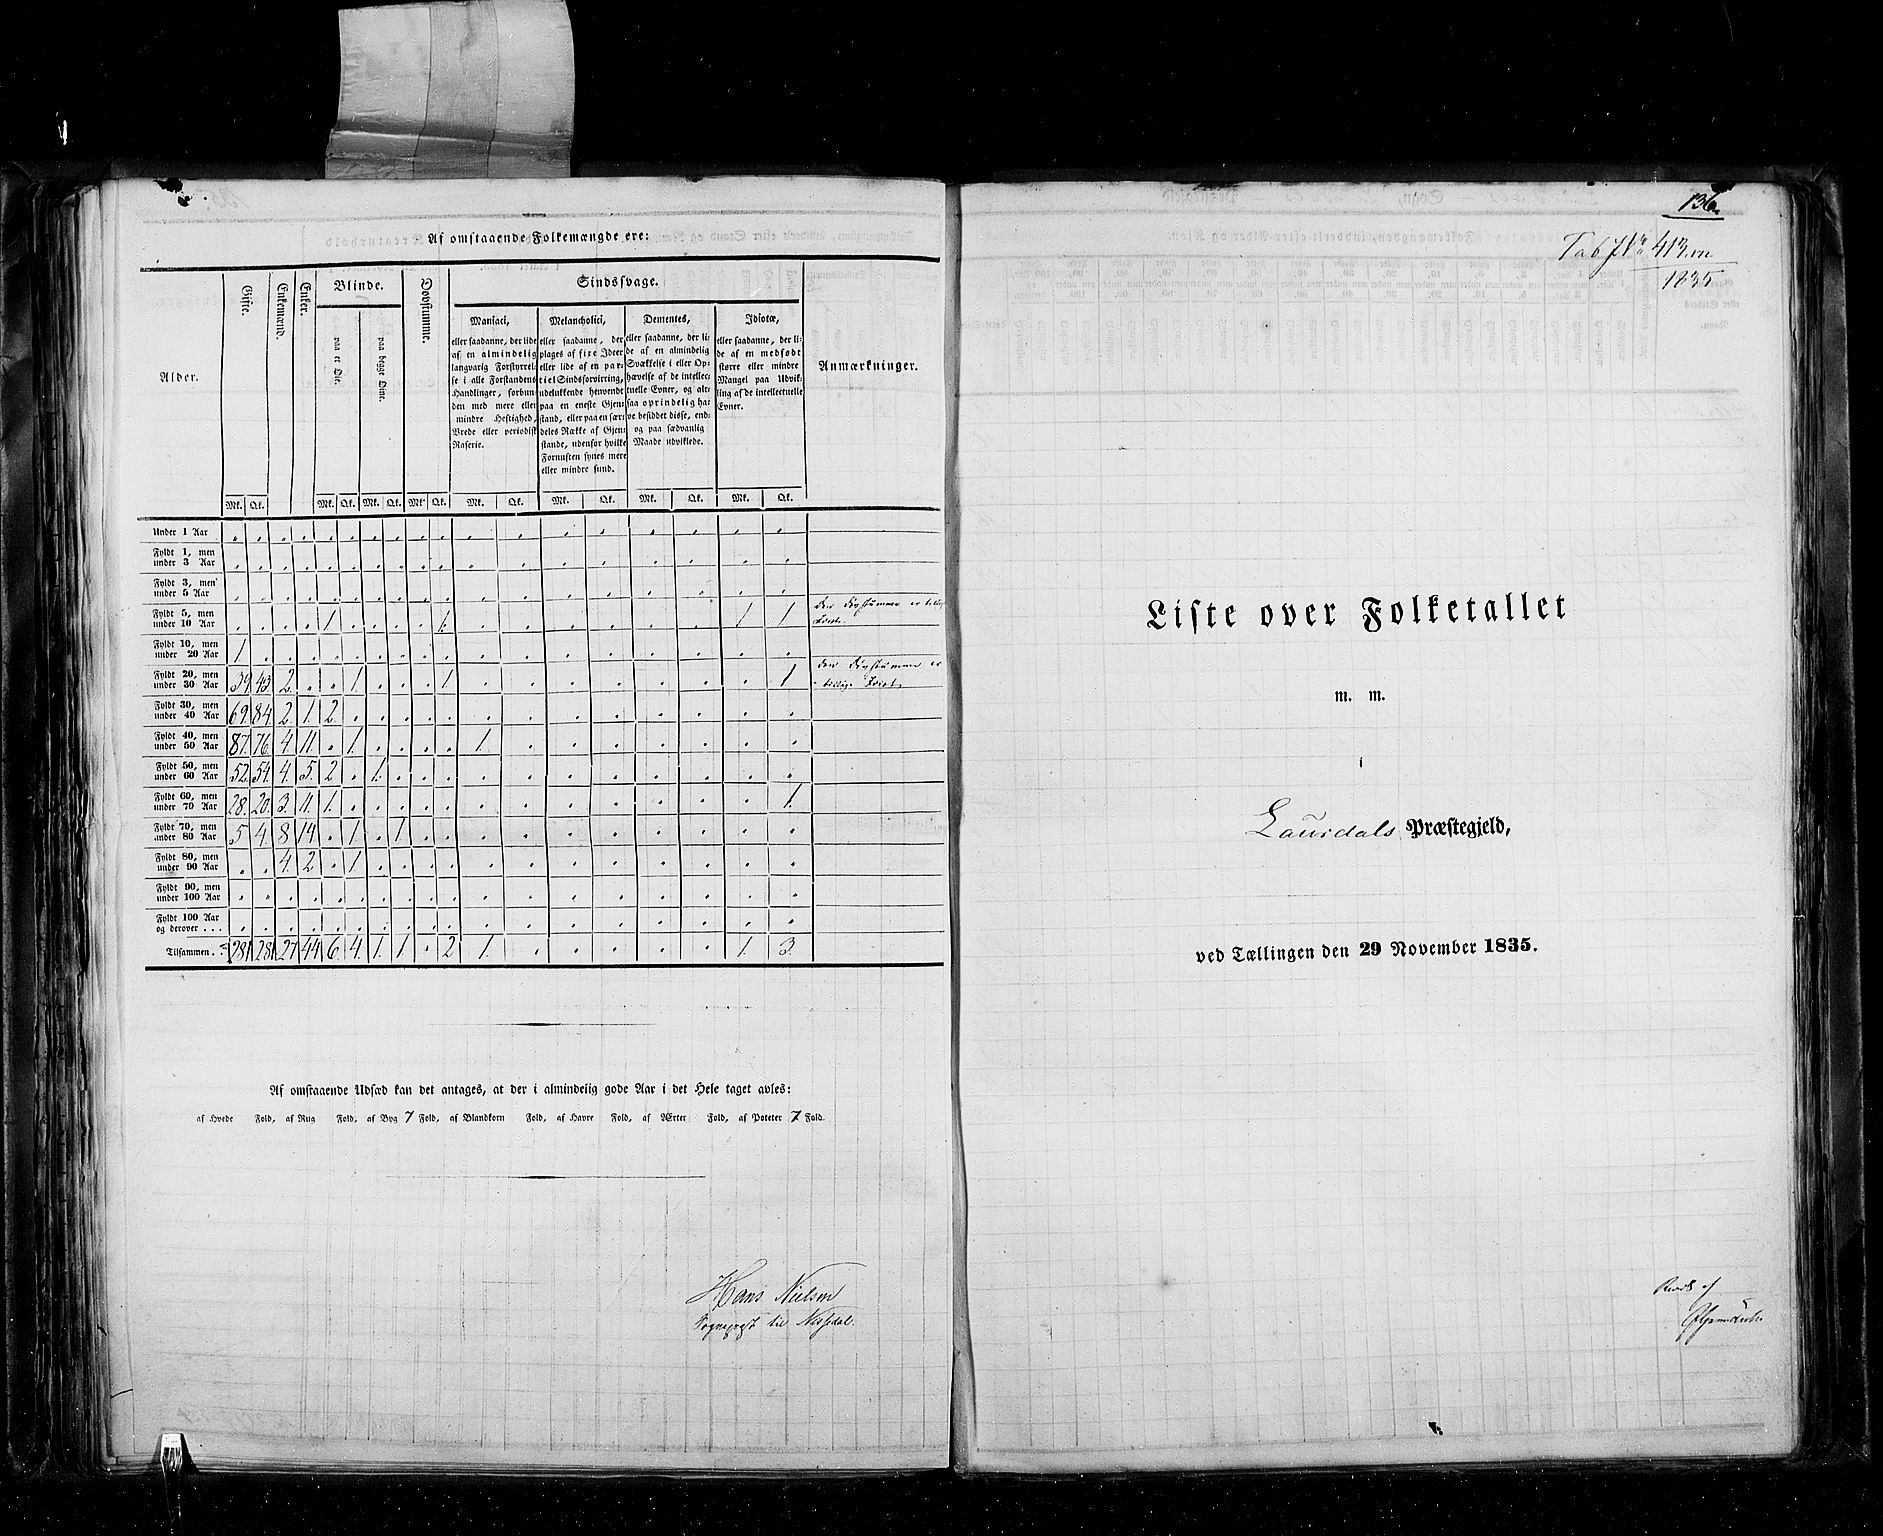 Af omstaaende Folkemængde ere:
Alder.
Gifte.
Enkemænd.
Enker.
Blinde.
paa et Øie.
paa begge Øine.
Døvstumme.
Sindssvage.
Maniaci,
eller saadanne, der lide
af en almindelig
langvarig Forstyrrel-
se i alle Forstandens
Handlinger, forbun-
den med mere eller
mindre Heftighed,
Vrede eller periodisk
Raserie.
Melancholici,
eller saadanne, der
plages af fixe Ideer
eller lide af en par-
tiel Sindsforvirring,
udelukkende henvendt
paa en eneste Gjen-
stand, eller paa en sær-
deles Række af Gjen-
stande, udenfor hvilke
Fornuften synes mere
eller mindre sund.
Dementes,
eller saadanne, der li-
de af en almindelig
Svækkelse i eller Op-
hævelse af de intellec-
tuelle Evner, og alt-
saa oprindelig ha-
ve besiddet disse, end-
og paa sædvanlig
Maade udviklede.
Idiotæ,
eller saadanne, der li-
de af en medfødt
større eller mindre
Mangel paa Udvik-
ling af de intellectuelle
Evner.
Anmærkninger.
Mk. Qk. Mk. Qk. Mk. Qk. Mk. Qk. Mk. Qk. Mk. Qk. Mk. Qk. Mk. Qk.
Under 1 Aar
Fyldt 1, men
under 3 Aar
Fyldt 3, men
under 5 Aar
Fyldt 5, men
under 10 Aar 1 1. 1 1 den døvstumme er
Fyldt 10, men
under 20 Aar 1
Fyldt 20, men
under 30 Aar 39. 43. 2. 1. 1 1 den døvstumme er
tillige Idiot.
Fyldt 30, men
under 40 Aar 69. 84. 2. 1. 2.
Fyldt 40, men
under 50 Aar 87. 76. 4. 11. 1. 1.
Fyldt 50, men
under 60 Aar 52. 54. 4. 5. 2. 1.
Fyldt 60, men
under 70 Aar 28. 20. 3. 11. 1. 1.
Fyldt 70, men
under 80 Aar 5 4. 8 14 1. 1
Fyldt 80, men
under 90 Aar 4. 2. 1.
Fyldt 90, men
under 100 Aar
Fyldt 100 Aar
og derover . . .
Tilsammen . . 281 281 27 44 6. 4. 1. 1. 2 1. 1. 3.
Af omstaaende Udsæd kan det antages, at der i almindelig gode Aar i det Hele taget avles:
af Hvede Fold, af Rug Fold, af Byg 7 Fold, af Blandkorn Fold, af Havre Fold, af Ærter Fold, af Poteter 7 Fold.
Hans Nielsen
Sognepræst til Nissedal.
136.
Tab 7 No 413.m
1835
Liste over Folketallet
m. m.
i
Laurdals Præstegjeld,
ved Tællingen den 29 November 1835.